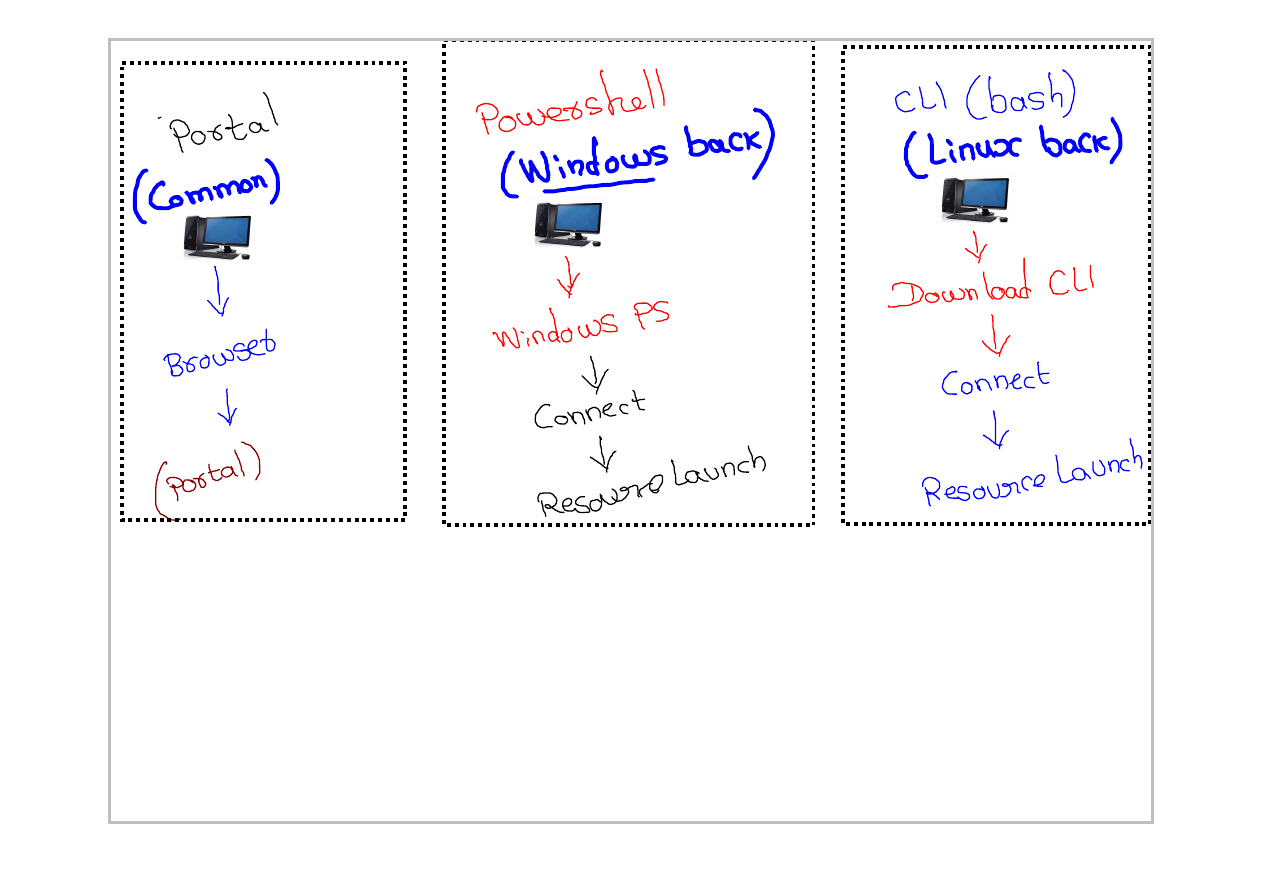 Portal
(Common)
Browser
(Portal)
Powershell
(Windows back)
Windows PS
Connect
Resource Launch
CLI (bash)
(Linux back)
Download CLI
Connect
Resource Launch